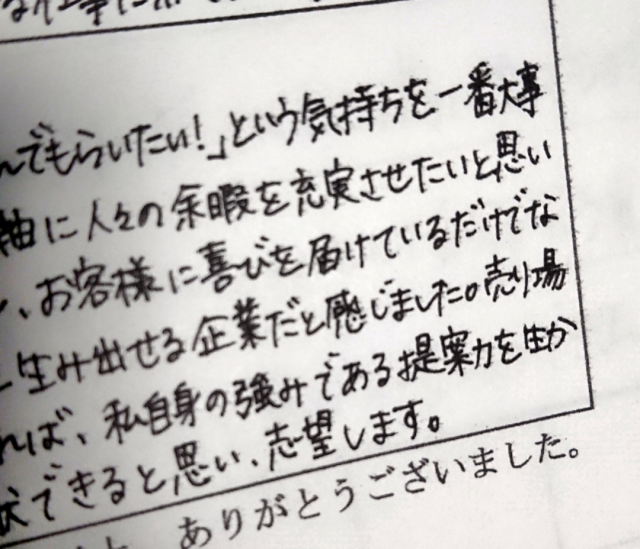 んでもらいたい!」という気持ちを一番大事
軸に人々の余暇を充実させたいと思い
、お客様に喜びを届けているだけでな
生み出せる企業だと感じました。売り場
れば、私自身の強みである提案力を生か
できると思い、志望します。
ありがとうございました。